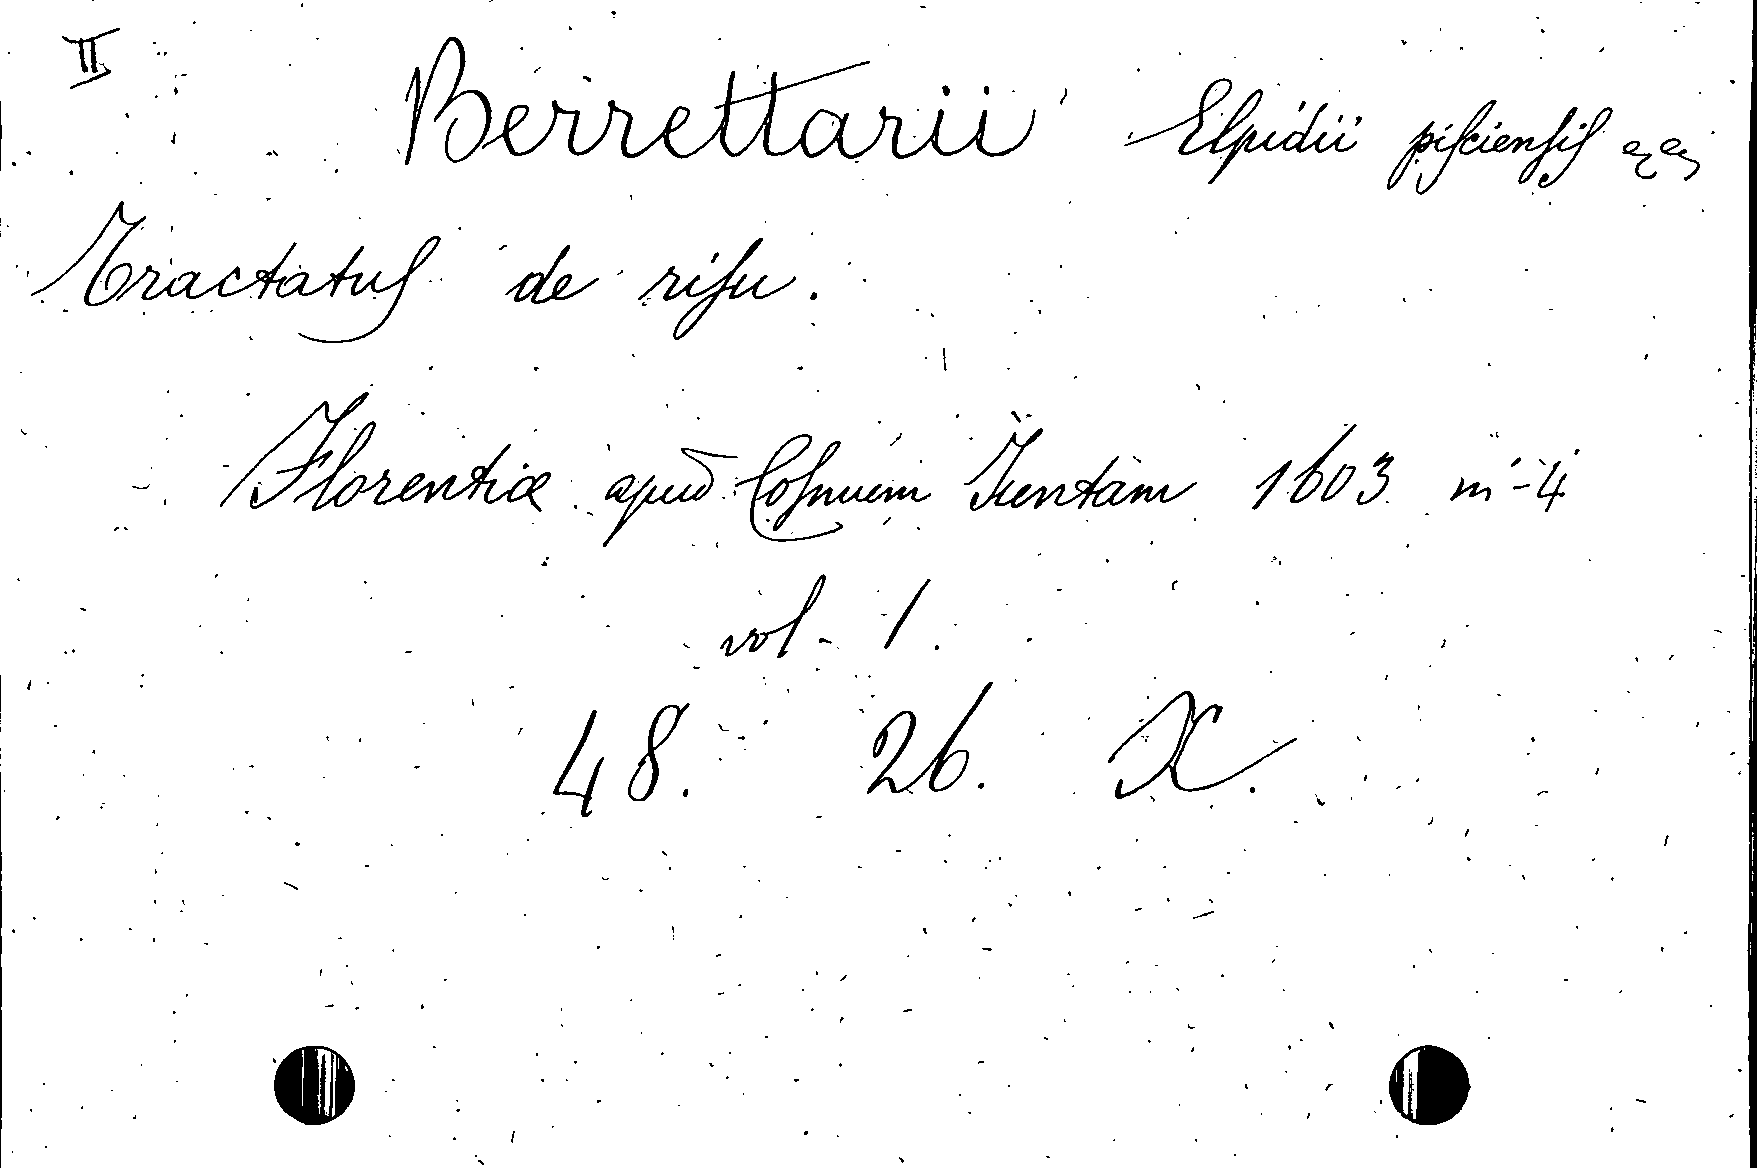 II
Berrettarii Elpidii piſcienſiſ
Tractatuſ de riſu.
Florentiæ apud Coſmum Iuntam 1603 in-4
vol - 1.
48. 26. X.